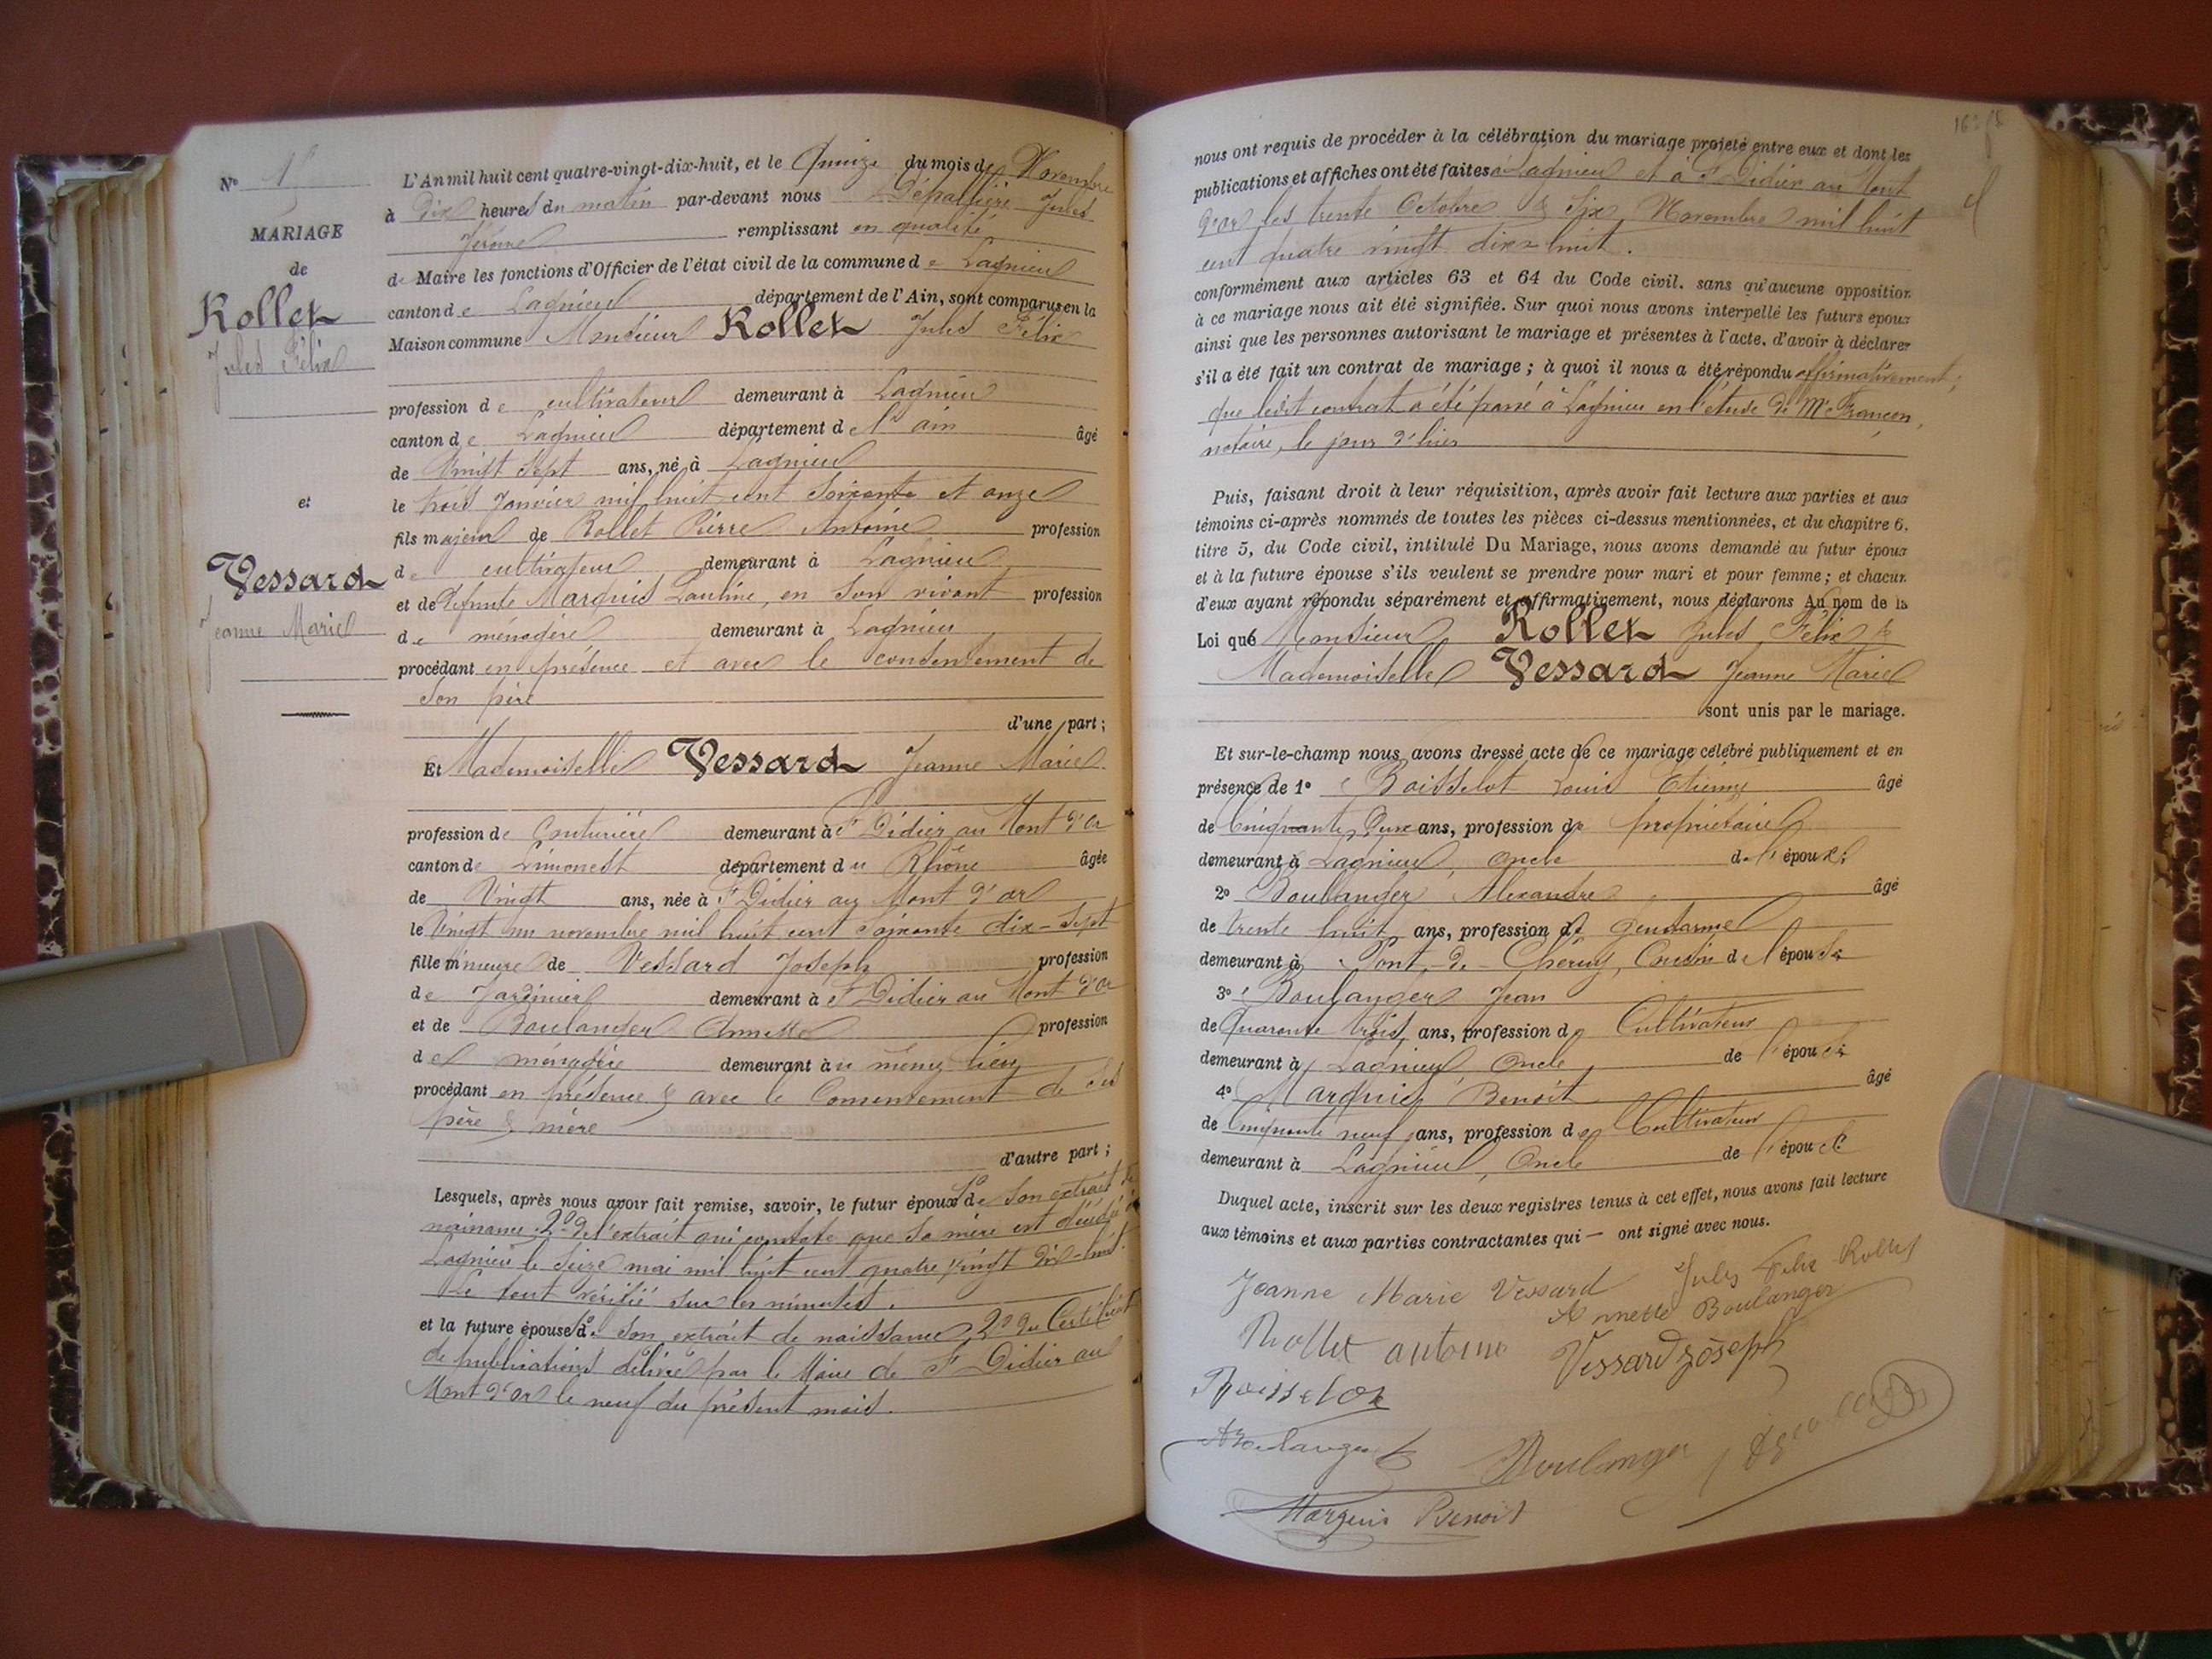 MARIAGE
de
Rollet
Jules Félix
et
Vessard
Jeanne Marie
L'An mil huit cent quatre-vingt-dix-huit, et le Quinze du mois de Novembre
à Dix heures du matin par-devant nous Jules
Jérôme remplissant en qualité
de Maire les fonctions d'Officier de l'état civil de la commune de Lagnieu
canton de Lagnieu département de l'Ain, sont comparus en la
Maison commune Monsieur Rollet Jules Félix
profession de cultivateur demeurant à Lagnieu
canton de Lagnieu département de l'ain âgé
de Vingt sept ans, né à Lagnieu
le trois Janvier mil huit cent soixante et onze
fils majeur de Rollet Pierre Antoine profession
de cultivateur demeurant à Lagnieu
et de Défunte Marquis Pauline, en son vivant profession
de ménagère demeurant à Lagnieu
procédant en présence et avec le consentement de
son père
d'une part ;
Et Mademoiselle Vessard Jeanne Marie
profession de Couturière demeurant à St Didier au Mont d'Or
canton de Limonest département du Rhône âgée
de Vingt ans, née à St Didier au Mont d'or
le Vingt un novembre mil huit cent soixante dix-sept
fille mineure de Vessard Joseph profession
de Jardinier demeurant à St Didier au Mont d'Or
et de Boulanger Annette profession
de ménagère demeurant au même lieu
procédant en présence & avec le Consentement de ses
père & mère
d'autre part ;
Lesquels, après nous avoir fait remise, savoir, le futur époux 1º de son extrait de
naissance 2º de l'extrait qui constate que sa mère est décédée à
Lagnieu le seize mai mil huit cent quatre vingt dix-huit.
Le tout vérifié sur les minutes.
et la future épouse 1º de son extrait de naissance 2º du Certificat
de publications délivré par le Maire de St Didier au
Mont d'Or le neuf du présent mois.
nous ont requis de procéder à la célébration du mariage projeté entre eux et dont les
publications et affiches ont été faites à Lagnieu et à St Didier au Mont
d'or les trente Octobre & Six Novembre mil huit
cent quatre vingt dix-huit.
conformément aux articles 63 et 64 du Code civil. sans qu'aucune opposition
à ce mariage nous ait été signifiée. Sur quoi nous avons interpellé les futurs époux
ainsi que les personnes autorisant le mariage et présentes à l'acte, d'avoir à déclarer
s'il a été fait un contrat de mariage ; à quoi il nous a été répondu affirmativement,
que ledit contrat a été passé à Lagnieu en l'étude de Me
notaire, le jour d'hier
Puis, faisant droit à leur réquisition, après avoir fait lecture aux parties et aux
témoins ci-après nommés de toutes les pièces ci-dessus mentionnées, et du chapitre 6,
titre 5, du Code civil, intitulé Du Mariage, nous avons demandé au futur époux
et à la future épouse s'ils veulent se prendre pour mari et pour femme ; et chacun
d'eux ayant répondu séparément et affirmativement, nous déclarons Au nom de la
Loi que Monsieur Rollet Jules Félix &
Mademoiselle Vessard Jeanne Marie
sont unis par le mariage.
Et sur-le-champ nous avons dressé acte de ce mariage célébré publiquement et en
présence de 1º Boisselot Louis Etienne âgé
de Cinquante Deux ans, profession de propriétaire
demeurant à Lagnieu, oncle de l'époux ;
2º Boulanger Alexandre âgé
de trente huit ans, profession de gendarme
demeurant à Pont-de-Chéruy, Cousin de l'épouse
3º Boulanger Jean
de Quarante trois ans, profession de Cultivateur
demeurant à Lagnieu, Oncle de l'épouse
4º Marquis Benoit âgé
de Cinquante neuf ans, profession de Cultivateur
demeurant à Lagnieu, Oncle de l'époux
Duquel acte, inscrit sur les deux registres tenus à cet effet, nous avons fait lecture
aux témoins et aux parties contractantes qui — ont signé avec nous.
Jeanne Marie Vessard Jules Felix Rollet
Annette Boulanger
Rollet antoine Vessard Joseph
Boisselot
Boulanger
Boulanger
Marquis Benoit